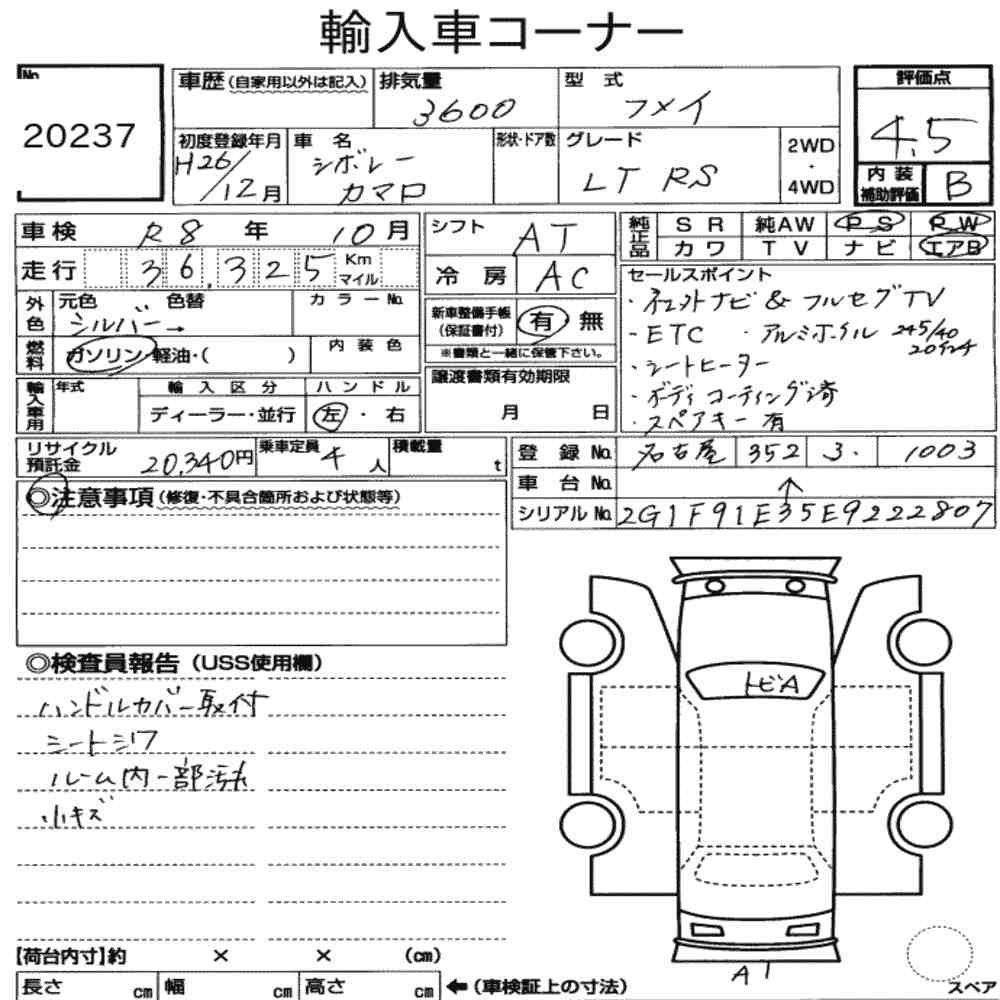 輸入車コーナー
No. 20237
車歴(自家用以外は記入) 排気量 3600 型式 フメイ
評価点 4.5
初度登録年月 H26/12月 車名 シボレー カマロ 形状・ドア数 グレード LT RS 2WD・4WD
内装補助評価 B
車検 R8年 10月 シフト AT
純正品 SR 純AW PS PW
カワ TV ナビ エアB
走行 36,325 Km マイル 冷房 AC
セールスポイント
・社外ナビ & フルセグTV
・ETC ・アルミホイル 245/40 20インチ
・シートヒーター
・ボディコーティング済
・スペアキー有
外色 元色 シルバー→ 色替 カラーNo.
新車整備手帳(保証書付) 有 無
※書類と一緒に保管下さい。
燃料 ガソリン・軽油・( ) 内装色
輸入車用 年式 輸入区分 ハンドル
ディーラー・並行 左・右
譲渡書類有効期限
月 日
リサイクル預託金 20,340円 乗車定員 4人 積載量 t
登録No. 名古屋 352 3. 1003
車台No. ↑
シリアルNo. 2G1F91E35E9222807
◎注意事項(修復・不具合箇所および状態等)
◎検査員報告(USS使用欄)
ハンドルカバー取付
シートシワ
ルーム内一部汚れ
小キズ
トビA
A1
【荷台内寸】約 × × (cm)
長さ cm 幅 cm 高さ cm ←(車検証上の寸法)
スペア